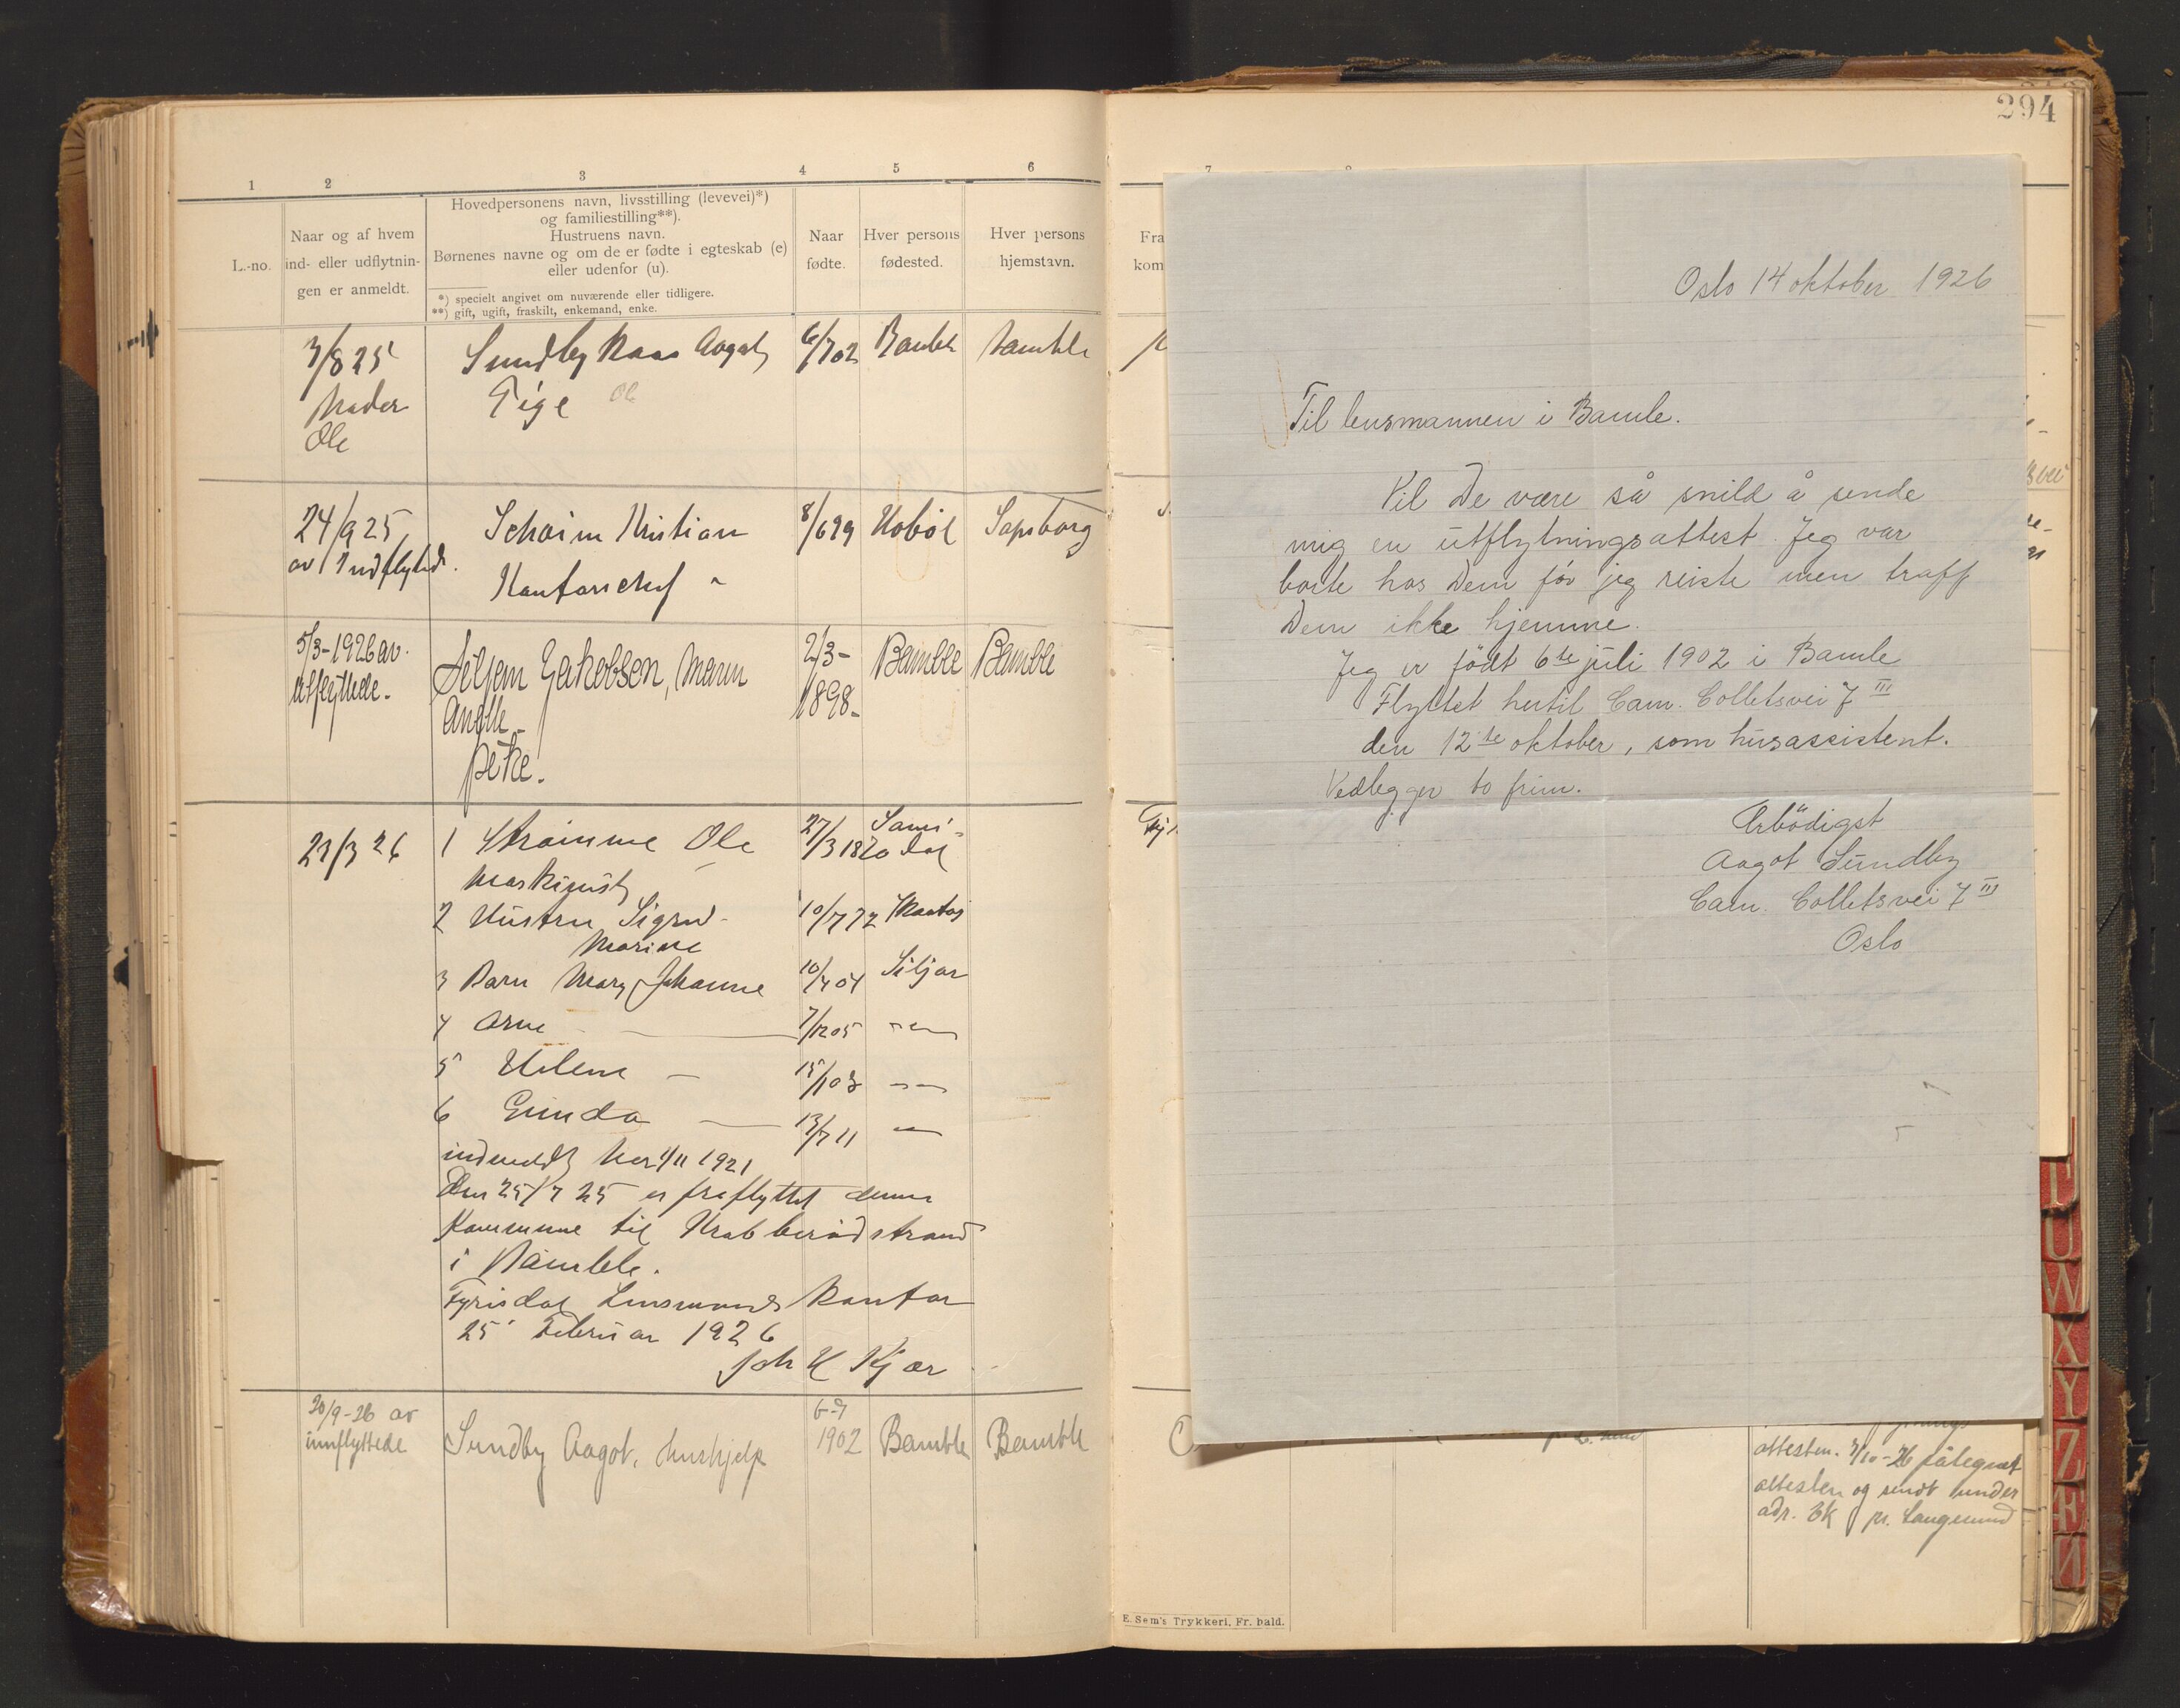 294
1 2 3 4 5 6
L.-no.
Naar og af hvem
ind- eller udflytnin-
gen er anmeldt.
Hovedpersonens navn, livsstilling (levevei)*)
og familiestilling**).
Hustruens navn.
Børnenes navne og om de er fødte i egteskab (e)
eller udenfor (u).
*) specielt angivet om nuværende eller tidligere.
**) gift, ugift, fraskilt, enkemand, enke.
Naar
fødte.
Hver persons
fødested.
Hver persons
hjemstavn.
7
Fra
kom
7/8 25
Moder
Ole
Sundby Aagot
Pige
6/7 02
Bamble
Bamble
24/9 25
av Indflytted.
Kristian
Kontorchef
8/6 99
Hobøl
Sapsborg
5/3-1926 av.
utflyttede.
Jakobsen, Marn
Anette
pike.
2/3-
1898-
Bamble
Bamble
23/3 26
1 Strømme Ole
Maskinist
27/3 1870
2 Hustru Sigrid
Marine
10/7 72
3 Barn Mary Johanne
10/4 04
Siljan
4 Arne
7/12 05
5 Helene
15/1 08
6 Gunda
13/7 11
indmeldt her 1/11 1921
Den 25/7 25 er fraflyttet denne
Kommune til Krabberødstrand
i Bamble.
Fyrisdal Lensmannskontor
25 Februar 1926
Joh H Kjær
20/9-26 av
innflyttede
Sundby Aagot, hushjelp
6-7
1902
Bamble
Bamble
Oslo 14 oktober 1926
Til lensmannen i Bamle.
Vil De være så snild å sende
mig en utflytningsattest. Jeg var
borte hos Dem før jeg reiste men traff
Dem ikke hjemme.
Jeg er født 6te juli 1902 i Bamle
Flyttet hertil Cam. Colletsvei 7 III
den 12te oktober, som husassistent.
Vedlegger to frim.
Ærbödigst
Aagot Sundby
Cam. Colletsvei 7 III
Oslo
attesten. 7/10-26 påtegnet
attesten og sendt under
adr. Ek pr. Langesund
E. Sem's Trykkeri, Fr. hald.
T
U
W
X
Y
Z
Æ